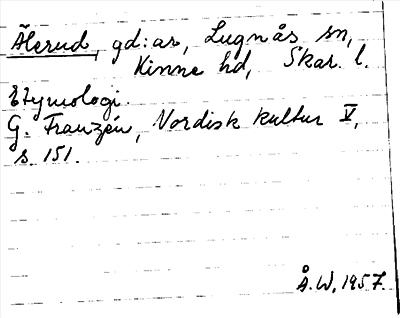 Älerud, gd:ar, Lugnås sn,
Kinne hd, Skar. l.
Etymologi.
G. Franzén, Nordisk kultur V,
s. 151.
Å.W, 1957.